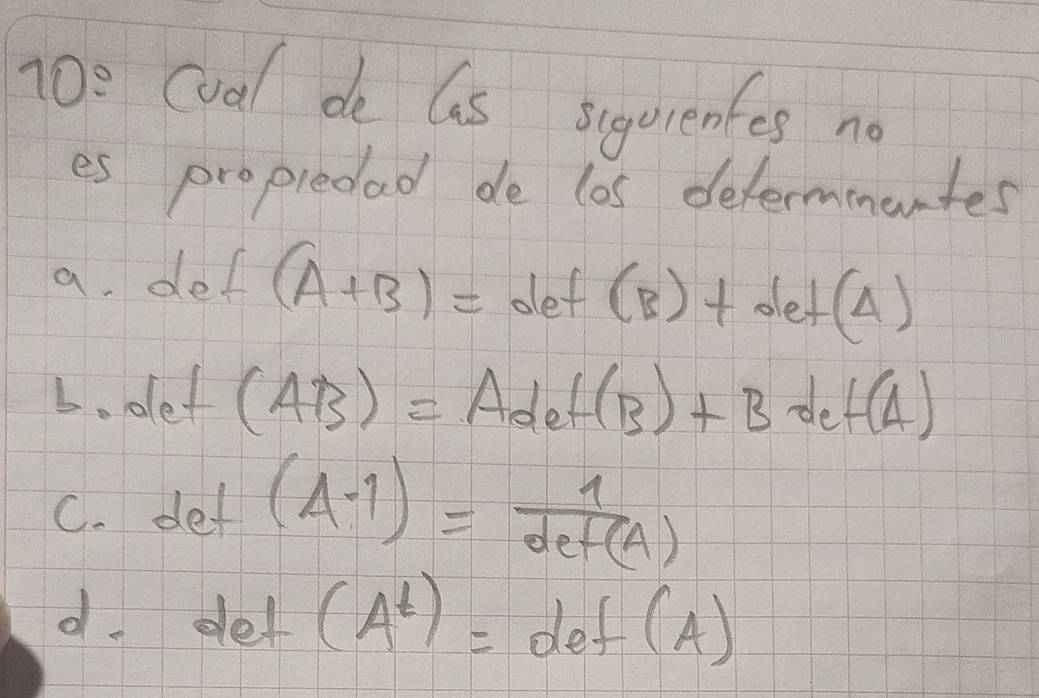 10: Cual de las siguientes no
es propiedad de los determinantes
a. det (A+B) = det (B) + det(A)
b. det (AB) = Adet(B) + B det(A)
c. det (A-1) = 1/det(A)
d. det (Aᵗ) = det (A)